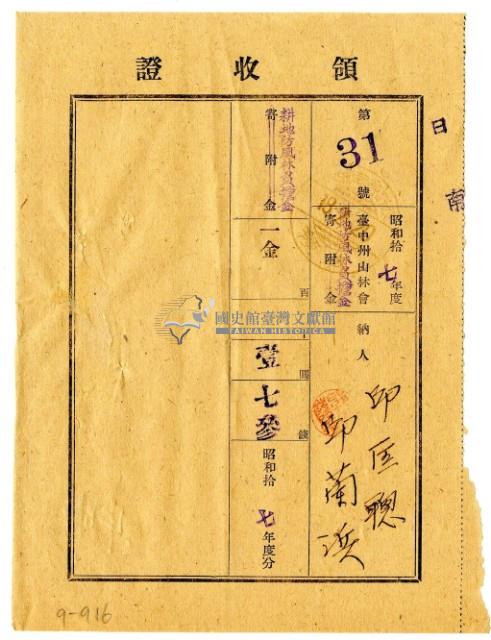 領收證
第31號
昭和拾七年度
臺中州山林會
耕地防風林負擔金
寄附金
納人
邱蘭
耕地防風林負擔金
寄附金
一金
百
圓
壹
錢
七參
昭和拾七年度分
日
南
國史館臺灣文獻館
TAIWAN HISTORICA
9-916